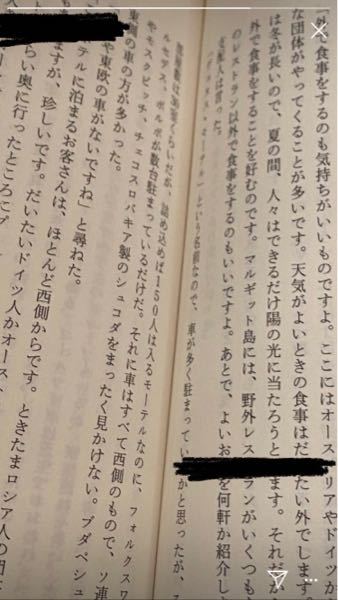 「外 食事をするのも気持ちがいいものですよ。ここにはオース リアやドイツか
な団体がやってくることが多いです。天気がよいときの食事はだ たい外でします。
は冬が長いので、夏の間、人々はできるだけ陽の光に当たろうと ます。それだか
外で食事をすることを好むのです。マルギット島には、野外レス ランがいくつも
のレストラン以外で食事をするのもいいですよ。あとで、よいお を何軒か紹介し
支配人は言った。
モーテル」という名前なので、車が多く駐まってい かと思ったが、
部屋数は36室くらいだが、詰め込めば150人は入るモーテルなのに、フォルクスワ
ルセデス、ボルボが数台駐まっているだけだ。それに車はすべて西側のもので、ソ連
やモスクビッチ、チェコスロバキア製のシュコダをまったく見かけない。ブダペシュ
東側の車の方が多かった。
や東欧の車がないですね」と尋ねた。
テルに泊まるお客さんは、ほとんど西側からです。ときたまロシア人の団
ますが、珍しいです。だいたいドイツ人かオース
らい奥に行ったところに